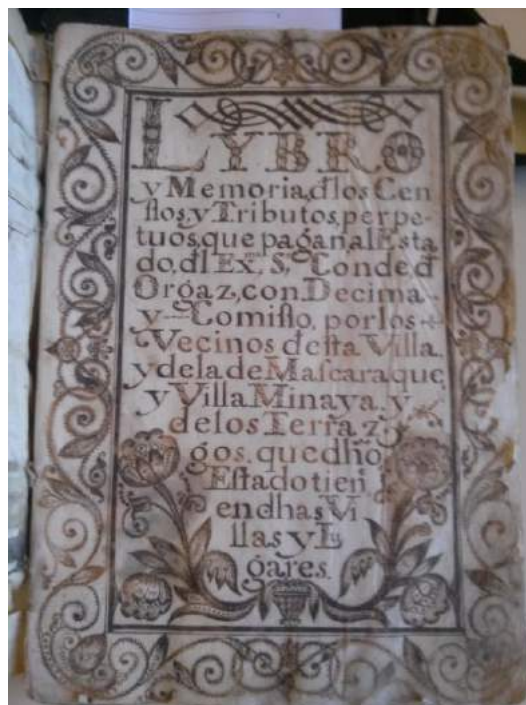 LYBRO
y Memoria, đlos Cen
ſſos, y Tributos, perpe-
tuos, que pagan, al Esta
do, đl EX. S. Conde đ
Orgaz, con Decima
y Comiſſo, por los
Vecinos deſta Villa,
y de la de Maſcaraque,
y Villa Minaya, y
de los Terraz
gos, que dħo
Eſtado tien
en dhas Vi
llas y Lu
gares.